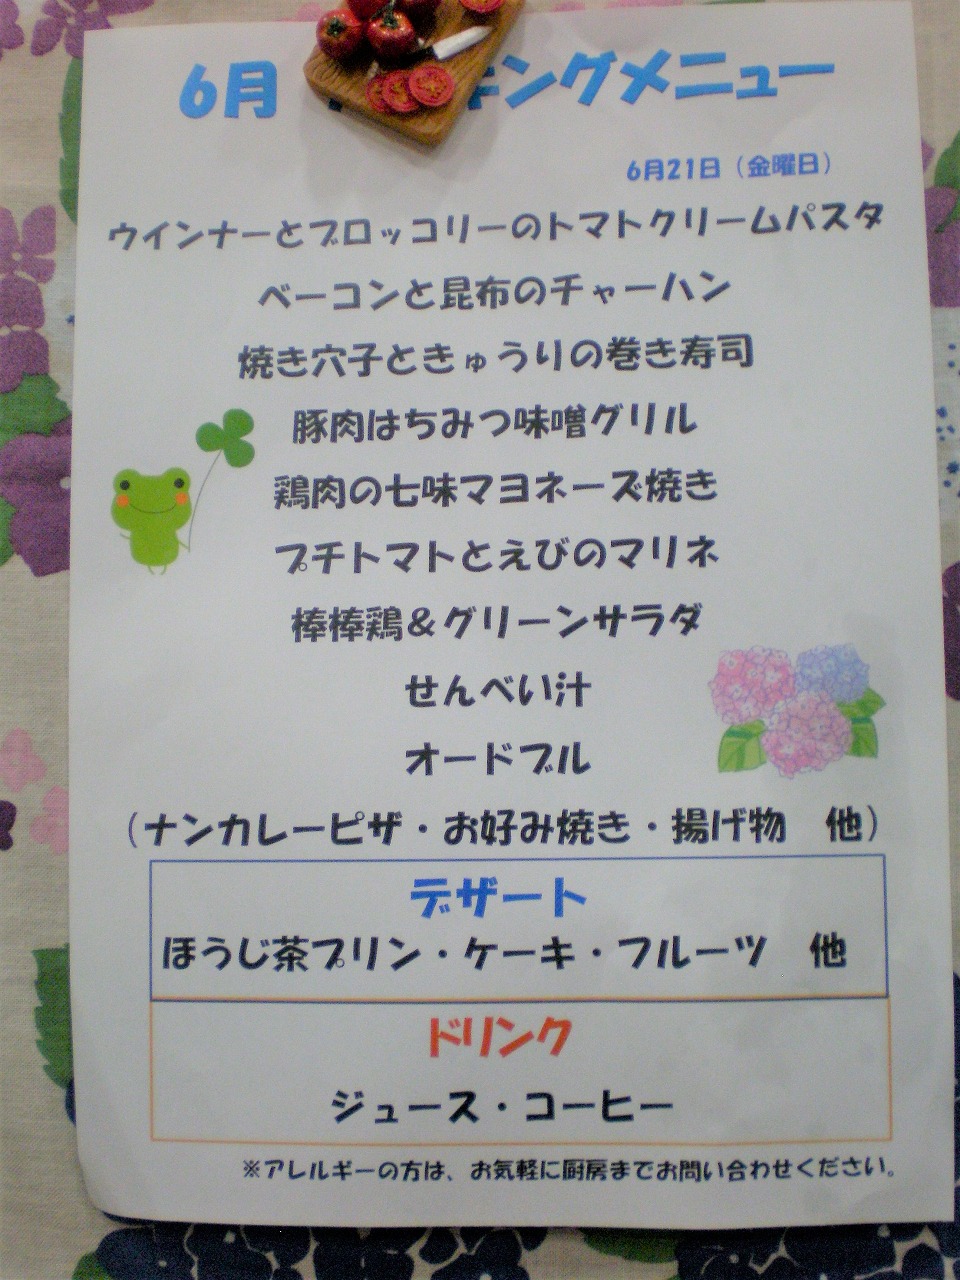 6月 キングメニュー
6月21日（金曜日）
ウインナーとブロッコリーのトマトクリームパスタ
ベーコンと昆布のチャーハン
焼き穴子ときゅうりの巻き寿司
豚肉はちみつ味噌グリル
鶏肉の七味マヨネーズ焼き
プチトマトとえびのマリネ
棒棒鶏＆グリーンサラダ
せんべい汁
オードブル
（ナンカレーピザ・お好み焼き・揚げ物　他）
デザート
ほうじ茶プリン・ケーキ・フルーツ　他
ドリンク
ジュース・コーヒー
※アレルギーの方は、お気軽に厨房までお問い合わせください。